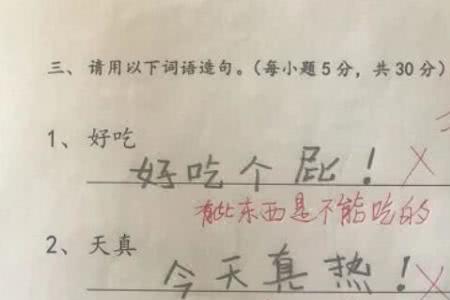 三、请用以下词语造句。(每小题5分，共30分)
1、好吃
好吃个屁！
有些东西是不能吃的
2、天真
今天真热！